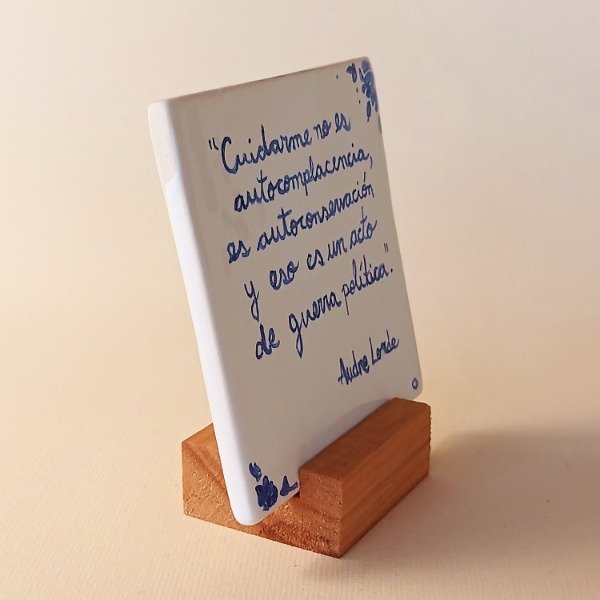 "Cuidarme no es
autocomplacencia,
es autoconservación
y eso es un acto
de guerra política".
Audre Lorde